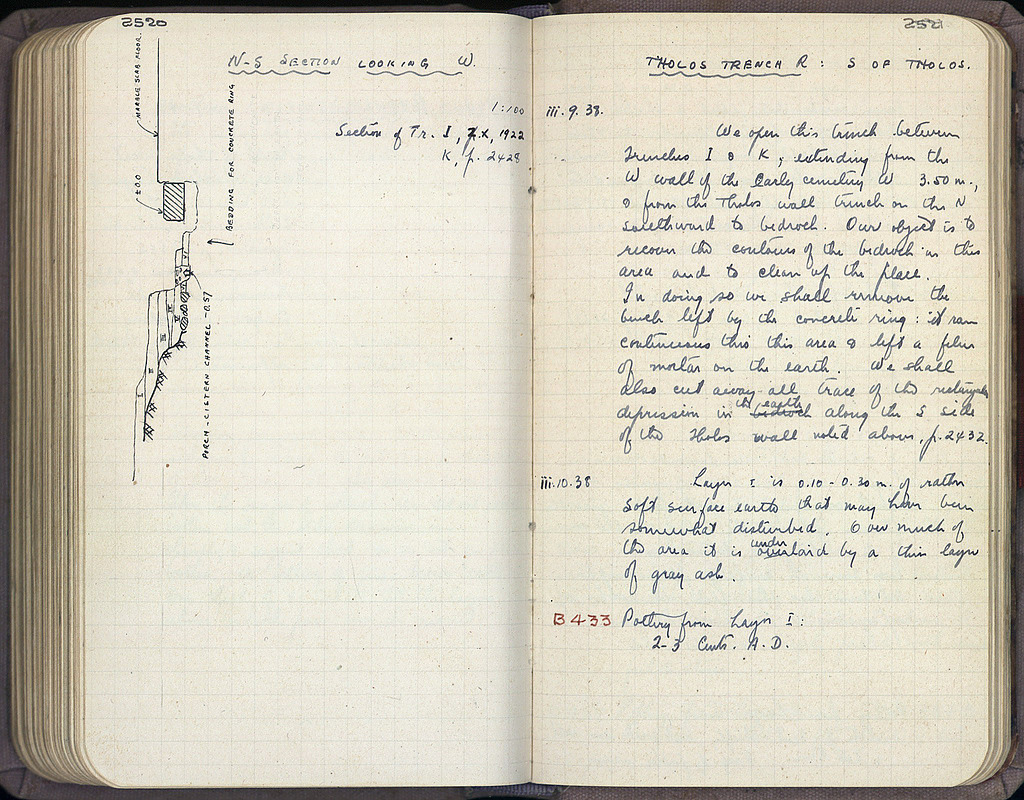 2520
N-S SECTION LOOKING W.
1:100
Section of Tr. I, p. 1922
K, p. 2428
MARBLE SLAB FLOOR.
± 0.0
BEDDING FOR CONCRETE RING
PORCH-CISTERN CHANNEL -0.57
I
II
III
2521
THOLOS TRENCH R: S OF THOLOS.
iii.9.38.
We open this trench between
trenches I & K, extending from the
W wall of the Early cemetery W 3.50 m.,
& from the Tholos wall trench on the N
southward to bedrock. Our object is to
recover the contours of the bedrock in this
area and to clean up the place.
In doing so we shall remove the
bench left by the concrete ring: it ran
continuous thro this area & left a film
of mortar on the earth. We shall
also cut away all trace of the rectangular
depression in the earth bedrock along the S side
of the Tholos wall noted above, p. 2432.
iii.10.38
Layer I is 0.10 - 0.30 m. of rather
soft surface earth that may have been
somewhat disturbed. Over much of
the area it is underlaid by a thin layer
of gray ash.
B 433 Pottery from Layer I:
2-3 Cents. A.D.